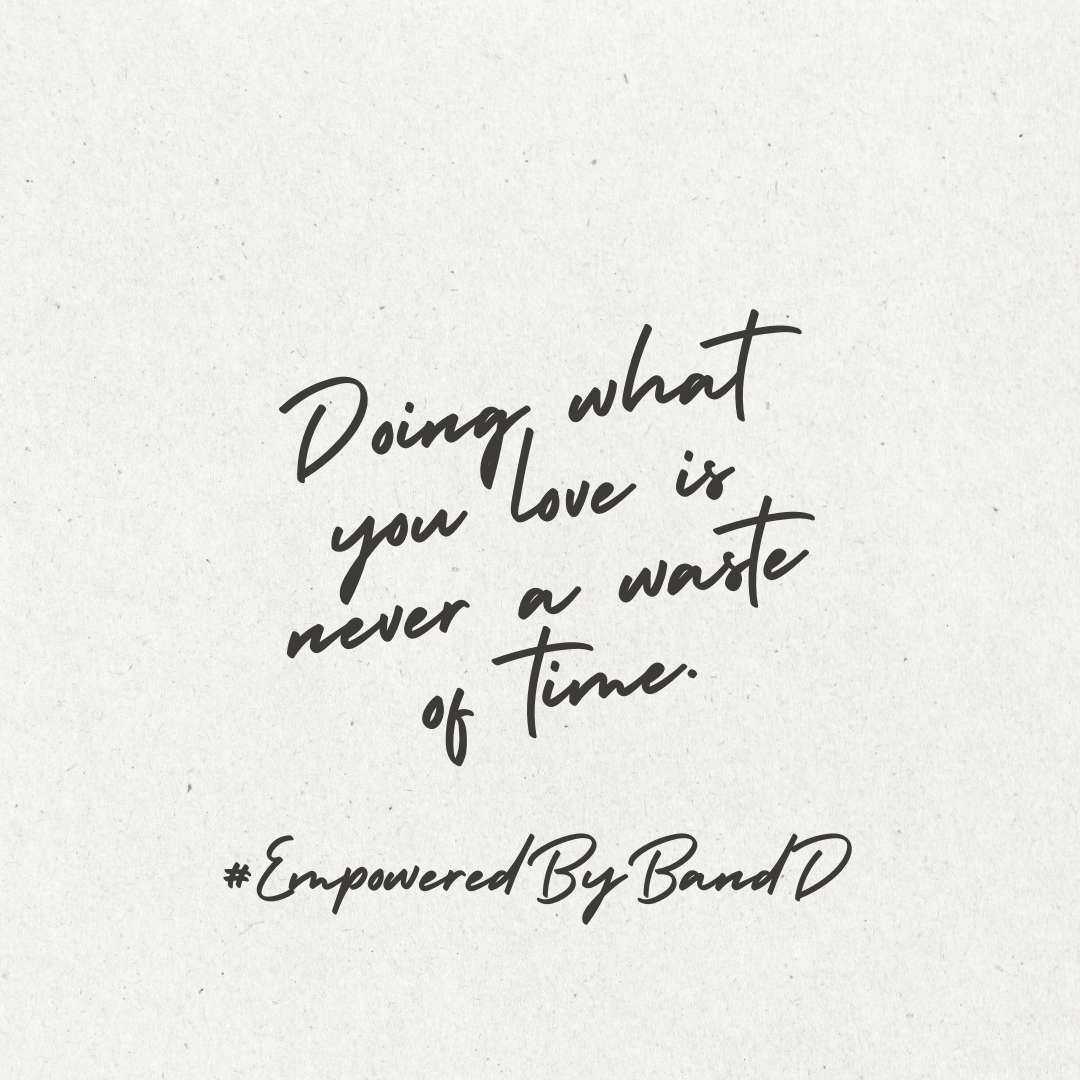 Doing what
you love is
never a waste
of time.
#EmpoweredByBandD